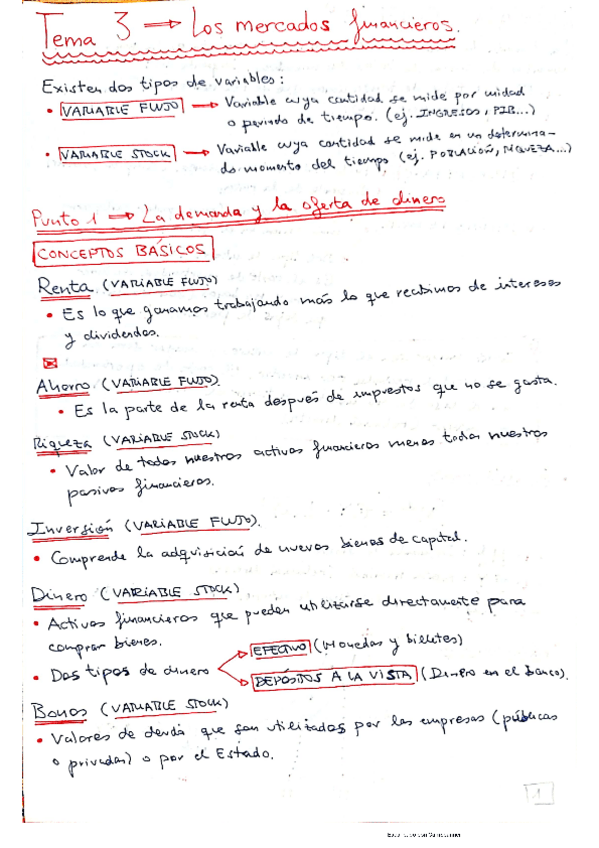 Tema 3 → Los mercados financieros.
Existen dos tipos de variables:
• VARIABLE FLUJO → Variable cuya cantidad se mide por unidad
o periodo de tiempo. (ej. INGRESOS, PIB...)
• VARIABLE STOCK → Variable cuya cantidad se mide en un determina-
do momento del tiempo (ej. POBLACIÓN, RIQUEZA...)
Punto 1 → La demanda y la oferta de dinero
CONCEPTOS BÁSICOS
Renta (VARIABLE FLUJO)
• Es lo que ganamos trabajando más lo que recibimos de intereses
y dividendos.
Ahorro (VARIABLE FLUJO)
• Es la parte de la renta después de impuestos que no se gasta.
Riqueza (VARIABLE STOCK)
• Valor de todos nuestros activos financieros menos todos nuestros
pasivos financieros.
Inversión (VARIABLE FLUJO).
• Comprende la adquisición de nuevos bienes de capital.
Dinero (VARIABLE STOCK)
• Activos financieros que pueden utilizarse directamente para
comprar bienes.
• Dos tipos de dinero
EFECTIVO (Monedas y billetes)
DEPÓSITOS A LA VISTA (Dinero en el banco).
Bonos (VARIABLE STOCK)
• Valores de deuda que son utilizados por las empresas (públicas
o privadas) o por el Estado.
1